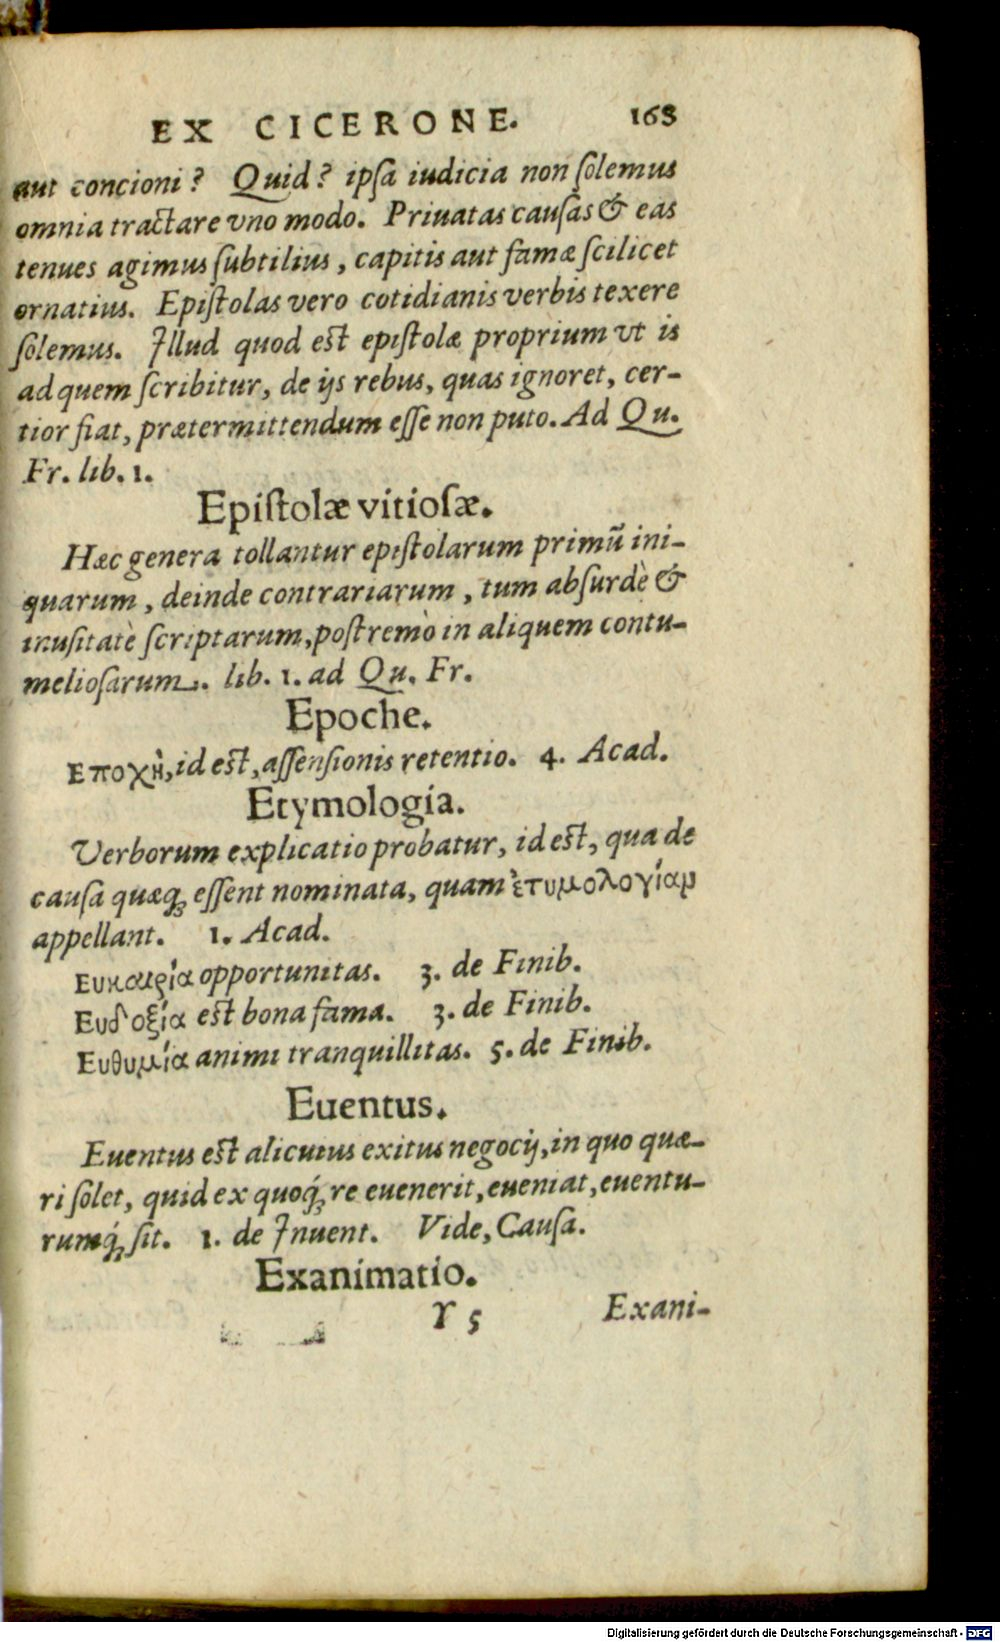 EX CICERONE. 168
aut concioni? Quid? ipſa iudicia non ſolemus
omnia tractare vno modo. Priuatas cauſas & eas
tenues agimus ſubtilius, capitis aut famæ ſcilicet
ornatius. Epiſtolas vero cotidianis verbis texere
ſolemus. Illud quod est epiſtolæ proprium vt is
ad quem ſcribitur, de ijs rebus, quas ignoret, cer-
tior fiat, prætermittendum eſſe non puto. Ad Qu.
Fr. lib. 1.
Epiſtolæ vitioſæ.
Hæc genera tollantur epiſtolarum primũ ini-
quarum, deinde contrariarum, tum abſurdè &
inuſitatè ſcriptarum, poſtremò in aliquem contu-
melioſarum. lib. 1. ad Qu. Fr.
Epoche.
Εποχὴ, id est, aſſenſionis retentio. 4. Acad.
Etymologia.
Verborum explicatio probatur, id est, qua de
cauſa quæq; eſſent nominata, quam ἐτυμολογίαν
appellant. 1. Acad.
Ευκαιρία opportunitas. 3. de Finib.
Ευδοξία est bona fama. 3. de Finib.
Ευθυμία animi tranquillitas. 5. de Finib.
Euentus.
Euentus est alicuius exitus negocij, in quo quæ-
ri ſolet, quid ex quoq́; re euenerit, eueniat, euentu-
rumq́; ſit. 1. de Inuent. Vide, Cauſa.
Exanimatio.
Y 5 Exani-
Digitalisierung gefördert durch die Deutsche Forschungsgemeinschaft - DFG